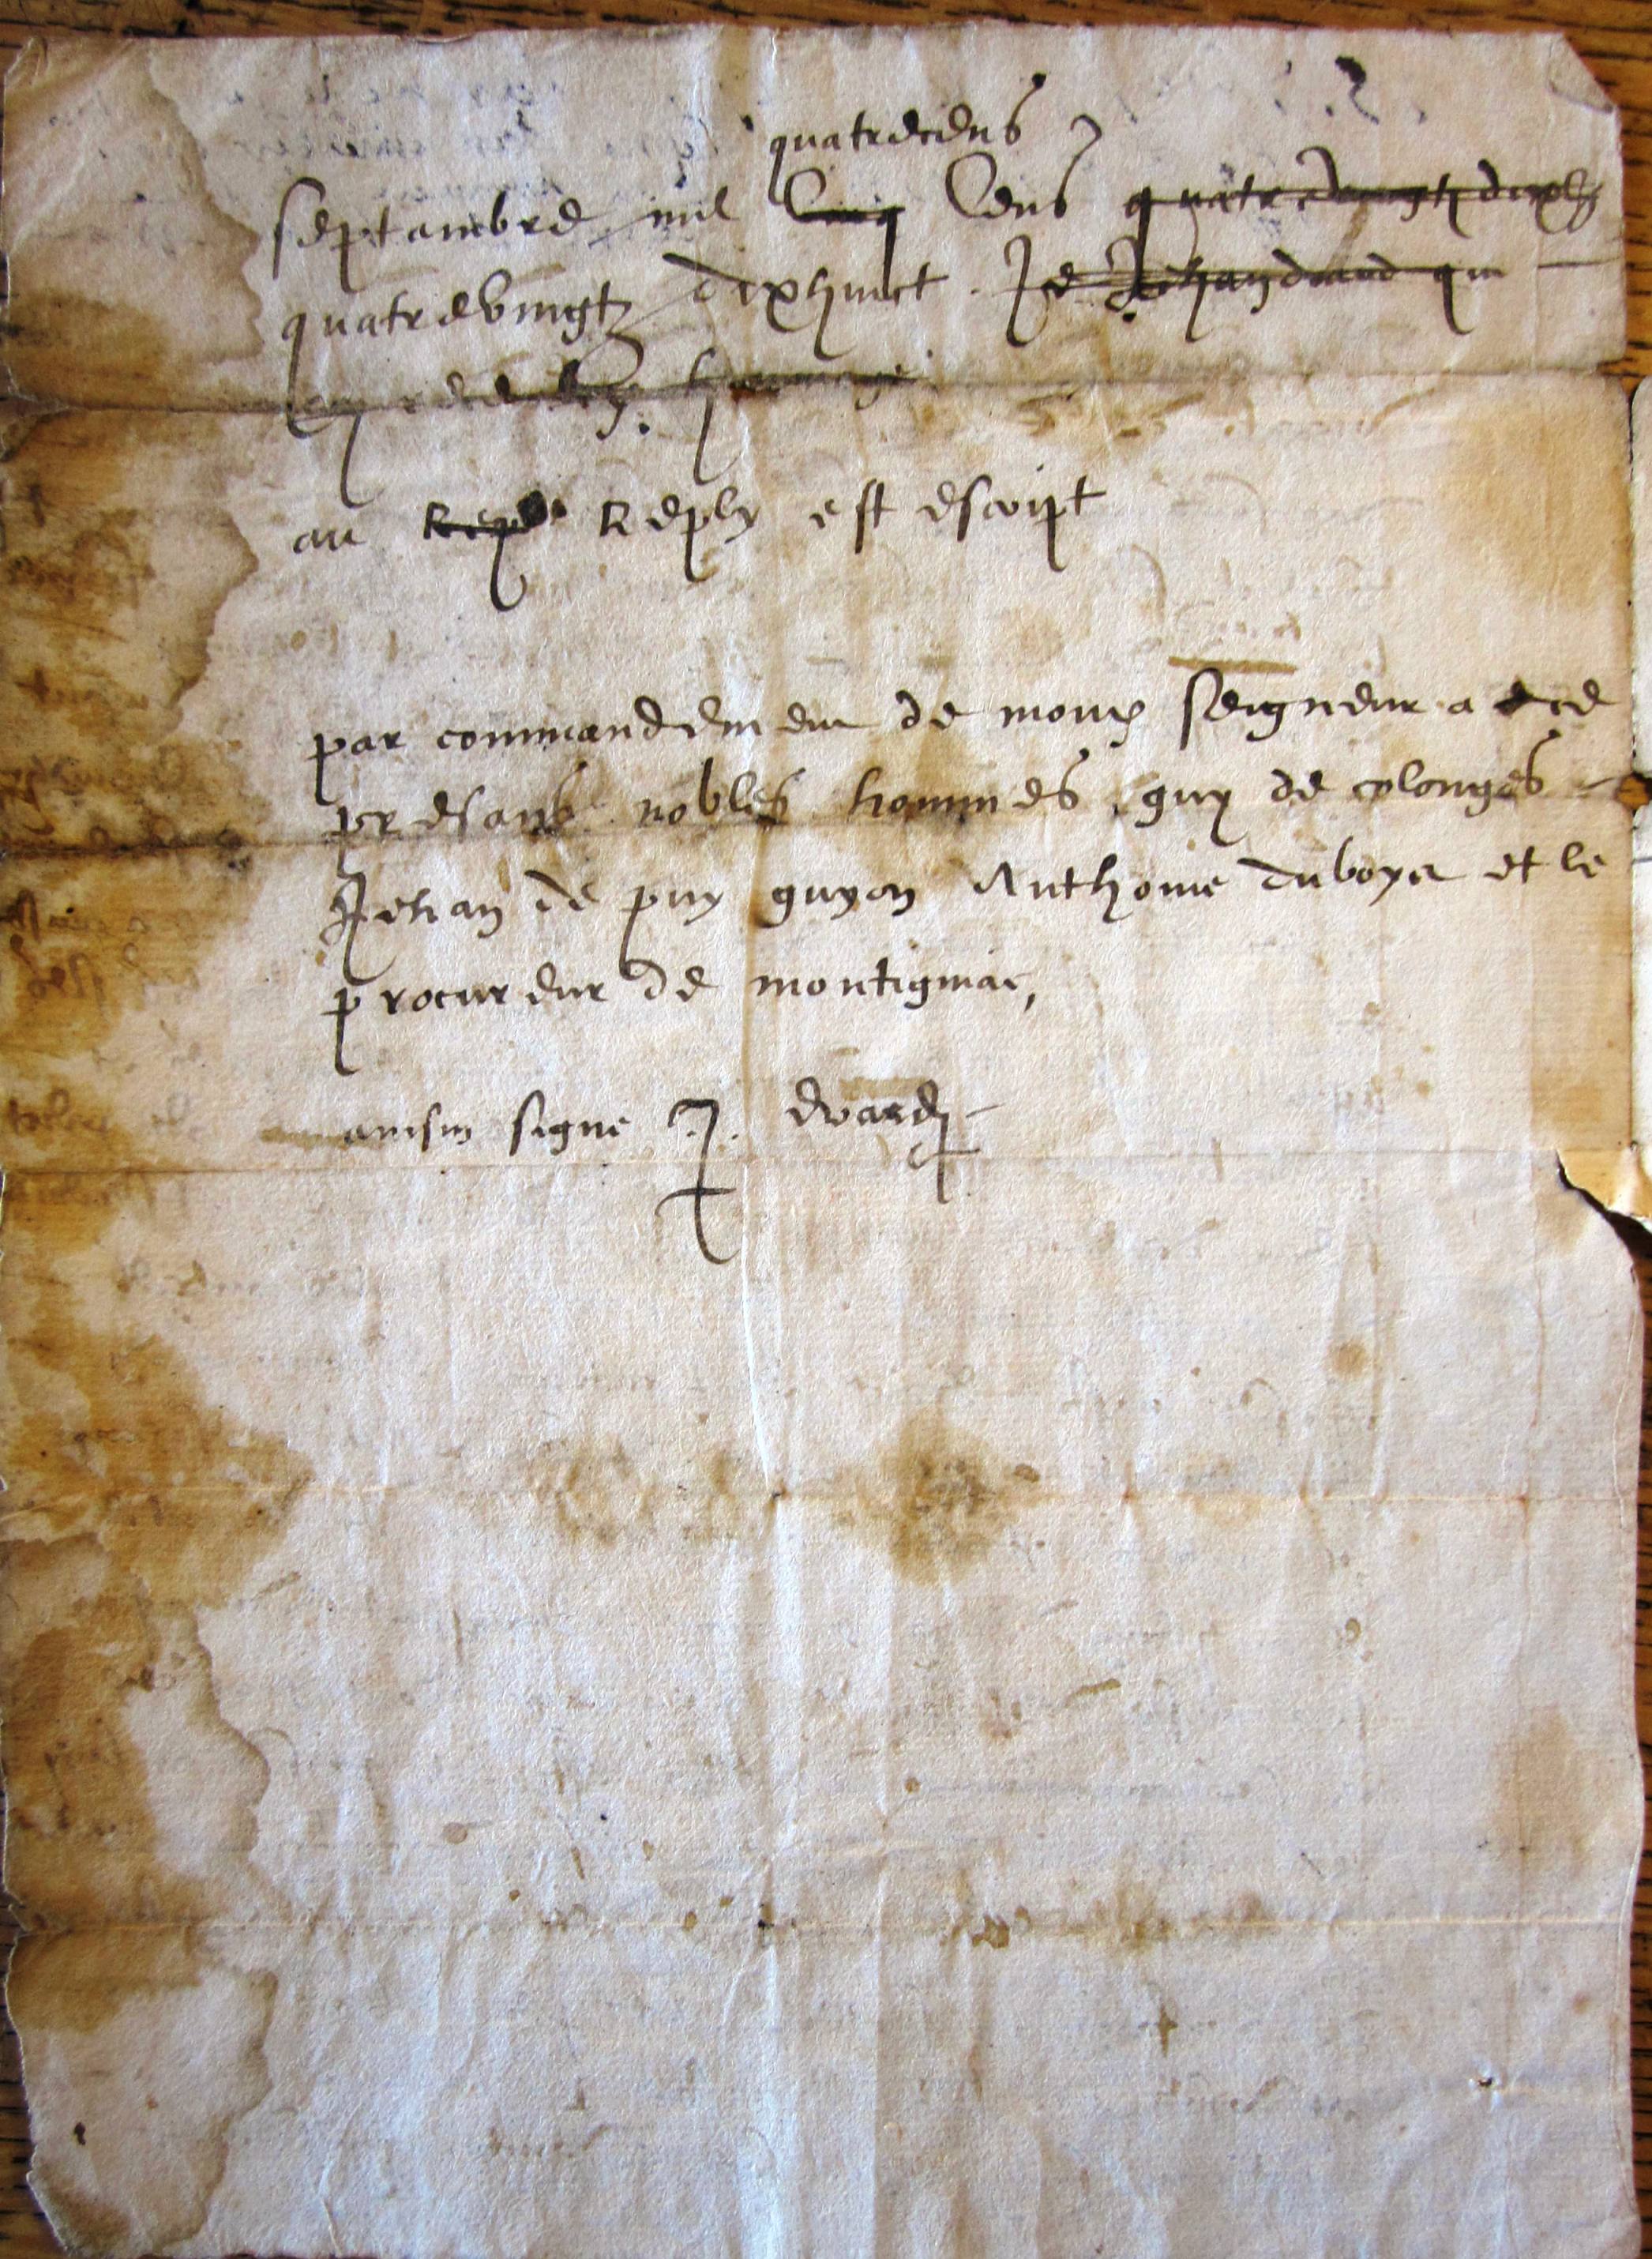 quatrecens
septambre mil cinq cens quatrevingtz dixh
quatrevingtz dixhuict . Je qui
au Repl Reply est escript
par commandement de mons seigneur a ce
presans nobles hommes guy de colonges
Jehan de puy guyon Anthonie duboys et le
procureur de montignac,
ainsin signe J. evardi